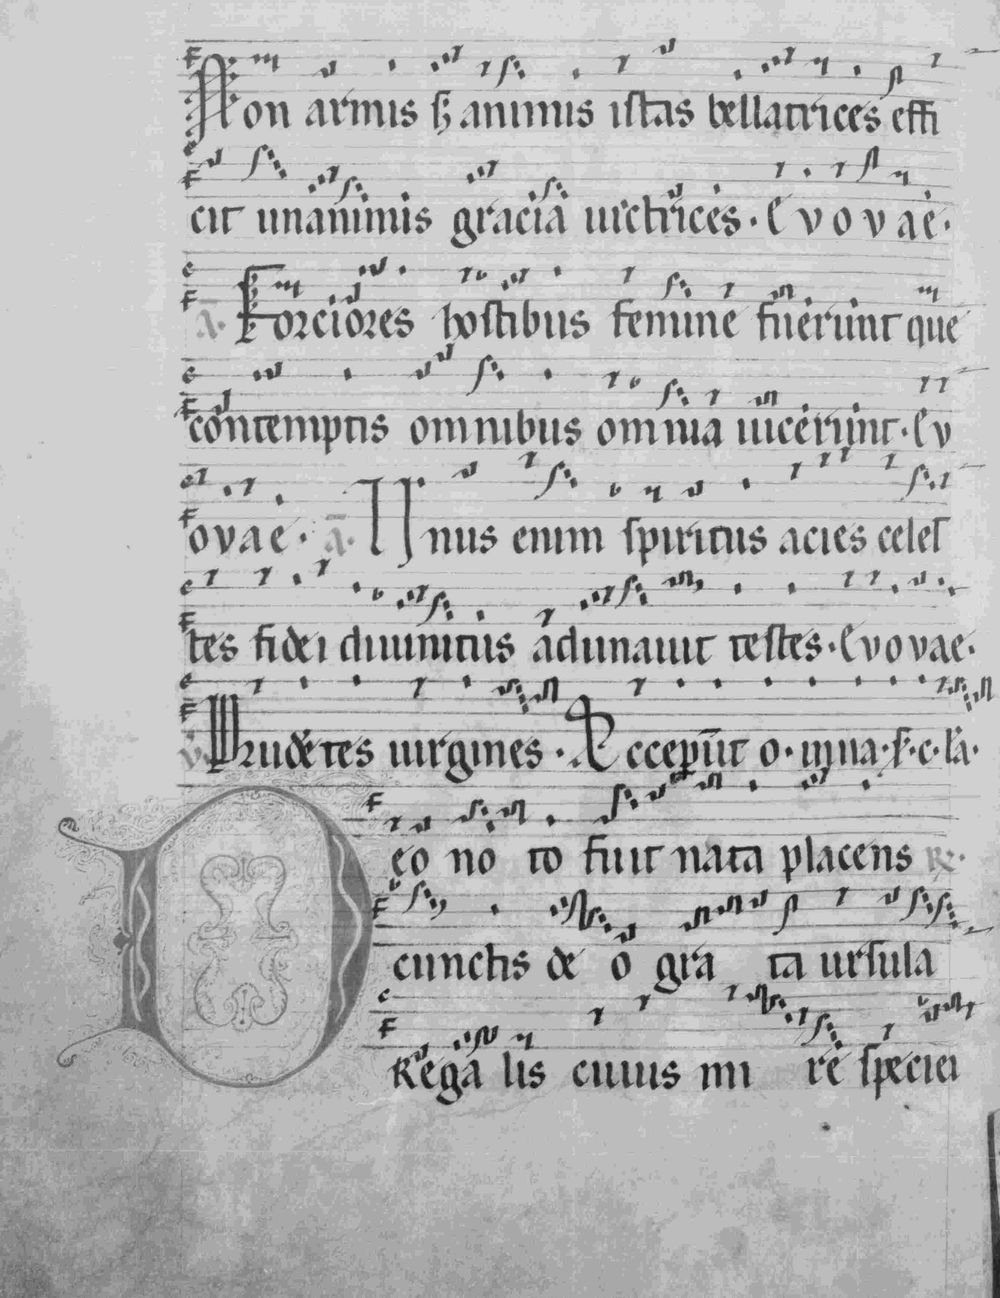 Non armis s; animis istas bellatrices effi
cit unanimis gracia uictrices. E v o v a e.
A. Forciores hostibus femine fuerunt que
contemptis omnibus omnia uicerunt. E v
o v a e. a. Unus enim spiritus acies celes
tes fidei diuinitus adunauit testes. E v o v a e.
v. Prudētes uirgines. Accepūt o. mna. s. c. la.
Deo no to fuit nata placens R.
cunctis de o gra ta ursula
Rega lis cuius mi re speciei